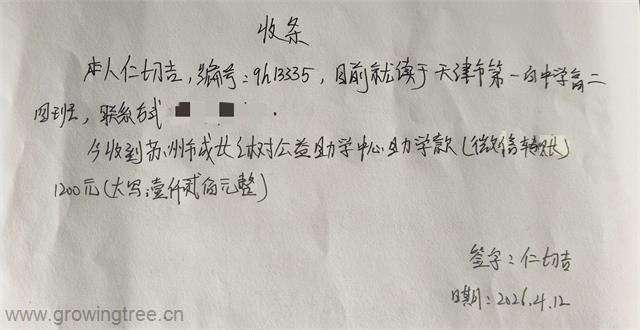 收条
本人仁切吉，编号：9h13335，目前就读于天津市第一百中学高二
四班，联系方式
今收到苏州市成长树公益助学中心助学款（微信转账）
1200元（大写：壹仟贰佰元整）
签字：仁切吉
日期：2026.4.12
www.growingtree.cn